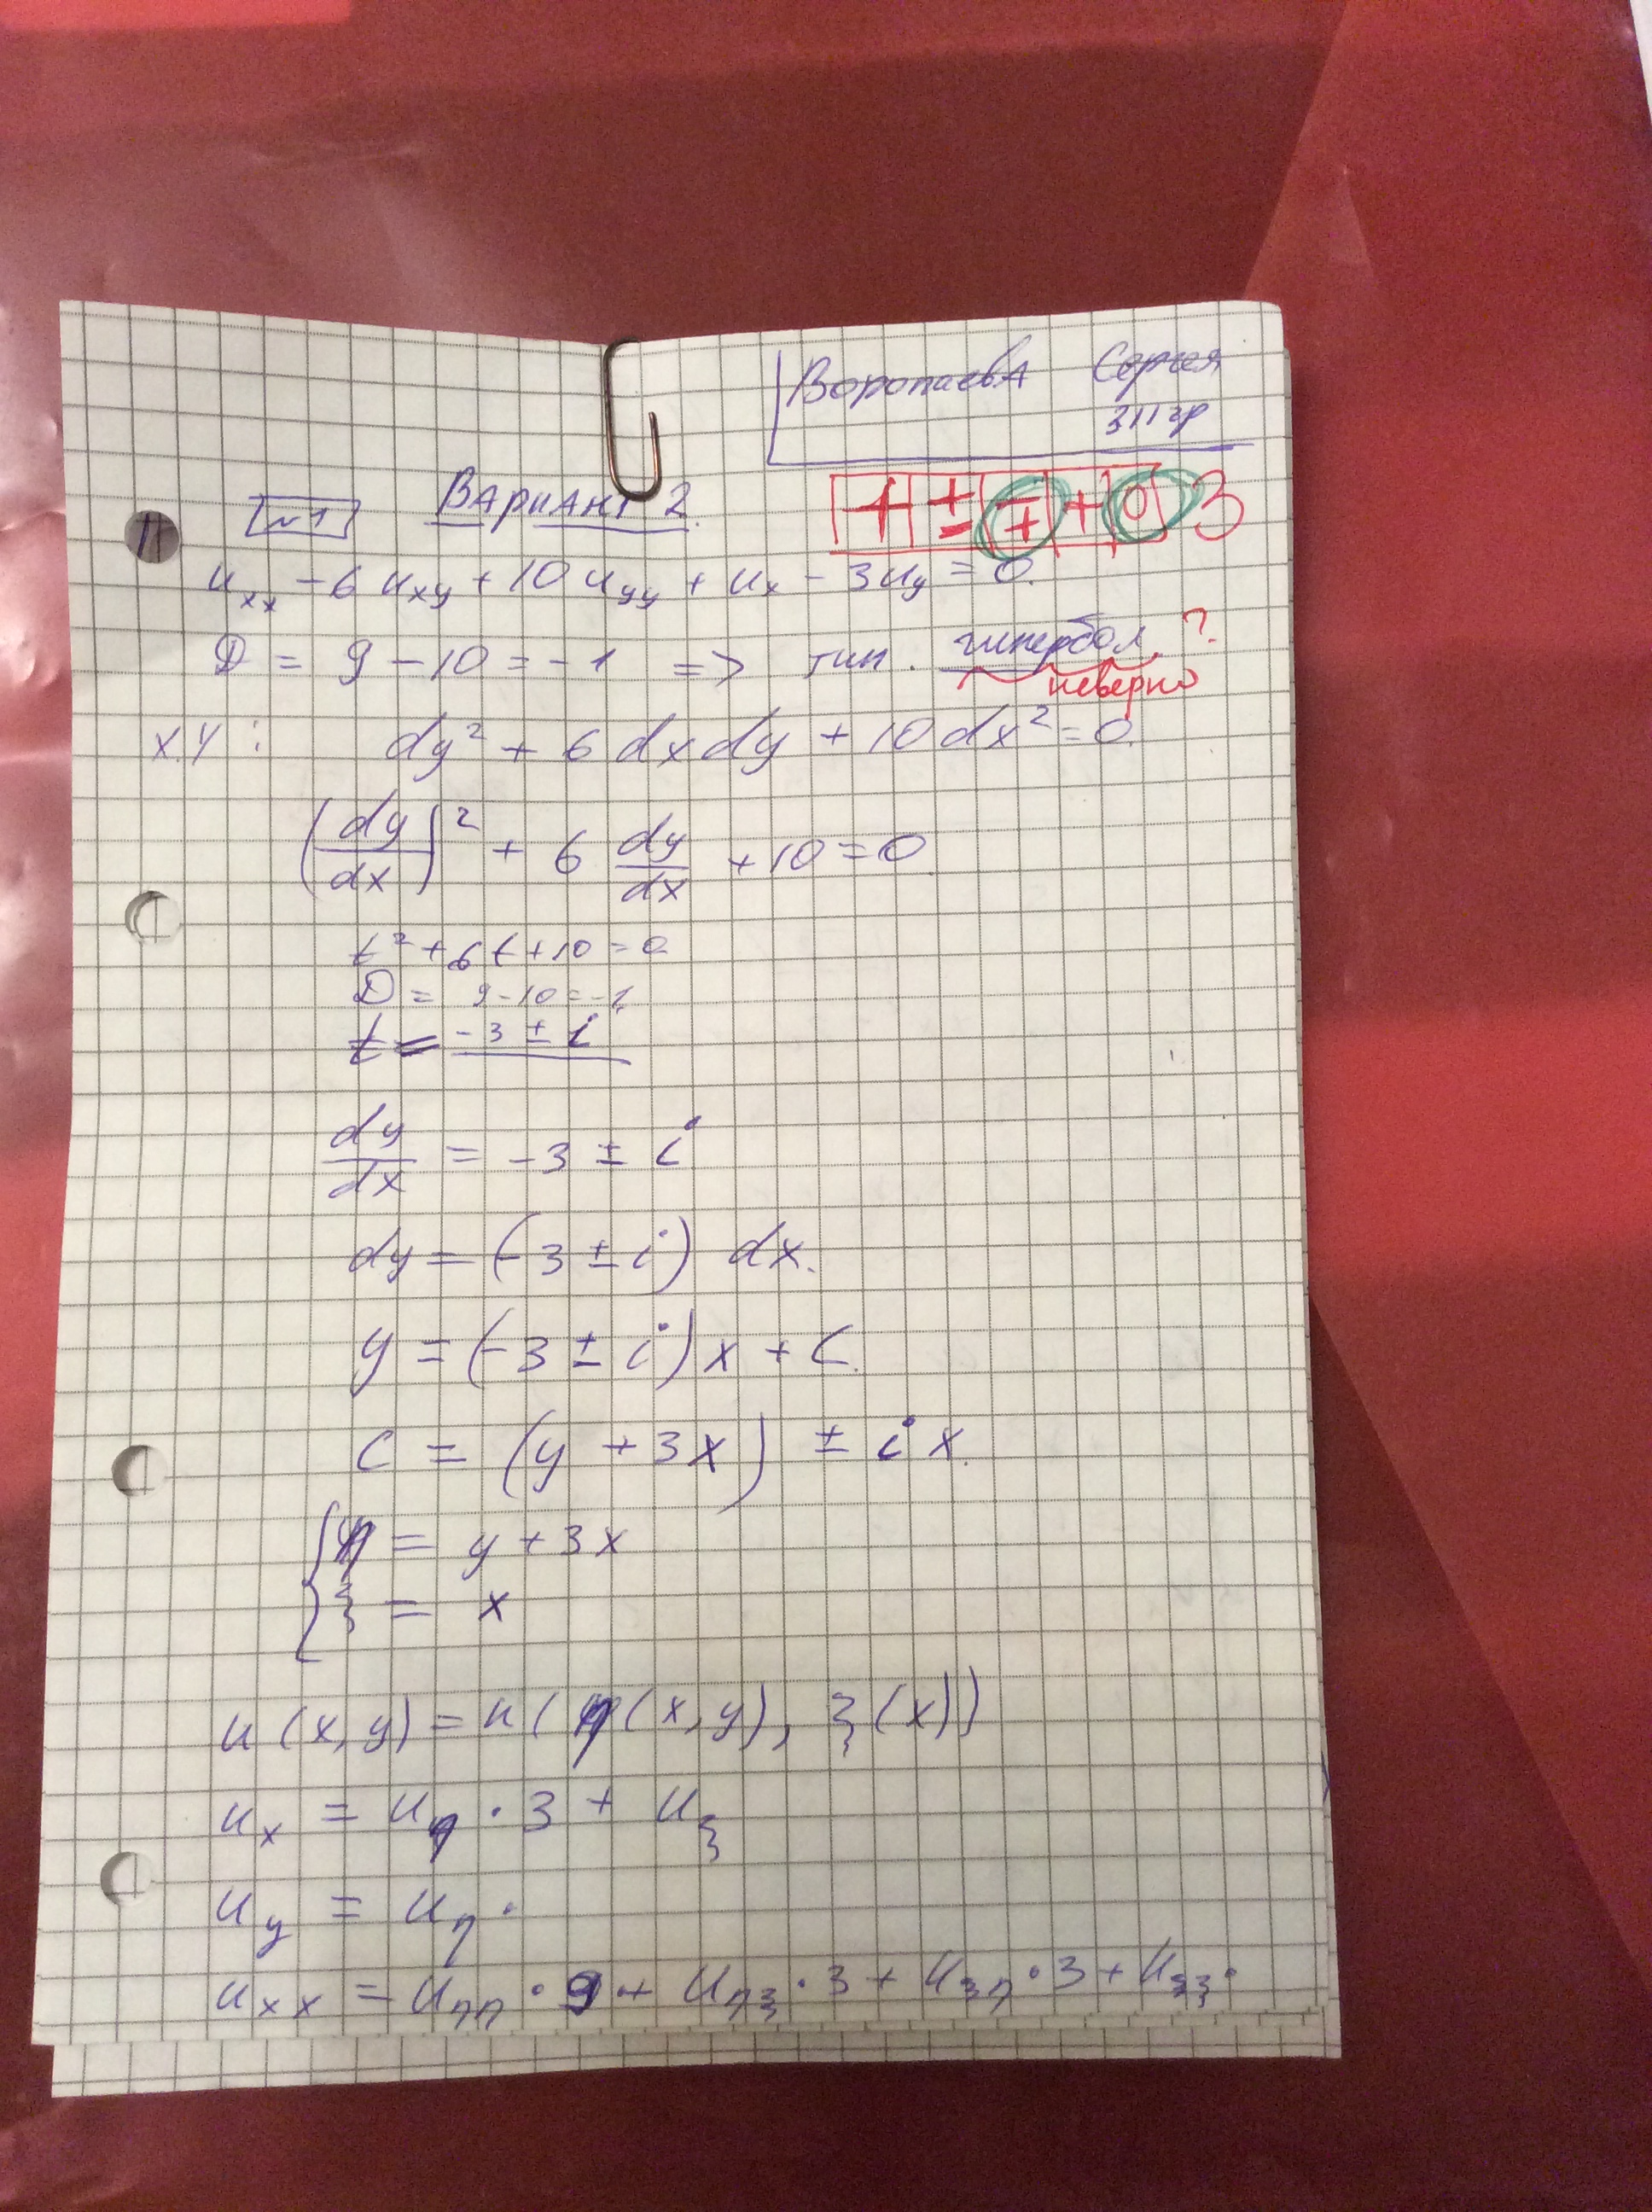 ВоропаевА Сергея
311 гр
№1 ВАриАнт 2.
+ | ± | ∓ | + | 0 3
u_xx - 6 u_xy + 10 u_yy + u_x - 3u_y = 0.
D = 9 - 10 = -1 => тип. гипербол. ?
неверно
х.у: dy² + 6 dx dy + 10 dx² = 0.
(dy/dx)² + 6 dy/dx + 10 = 0.
t² + 6t + 10 = 0
D = 9 - 10 = -1
t = -3 ± i
dy/dx = -3 ± i
dy = (-3 ± i) dx.
y = (-3 ± i) x + C.
C = (y + 3x) ± i x.
{ η = y + 3x
ξ = x
u (x, y) = u ( η (x, y), ξ (x))
u_x = u_η · 3 + u_ξ
u_y = u_η ·
u_xx = u_ηη · 9 + u_ηξ · 3 + u_ξη · 3 + u_ξξ ·